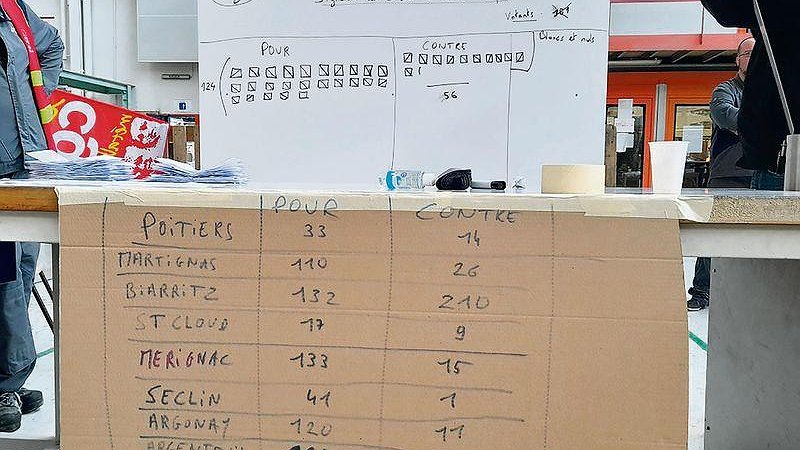 Votants
POUR CONTRE Blancs et nuls
124
56
POUR CONTRE
POITIERS 33 14
MARTIGNAS 110 26
BIARRITZ 132 210
ST CLOUD 17 9
MERIGNAC 133 15
SECLIN 41 1
ARGONAY 120 11